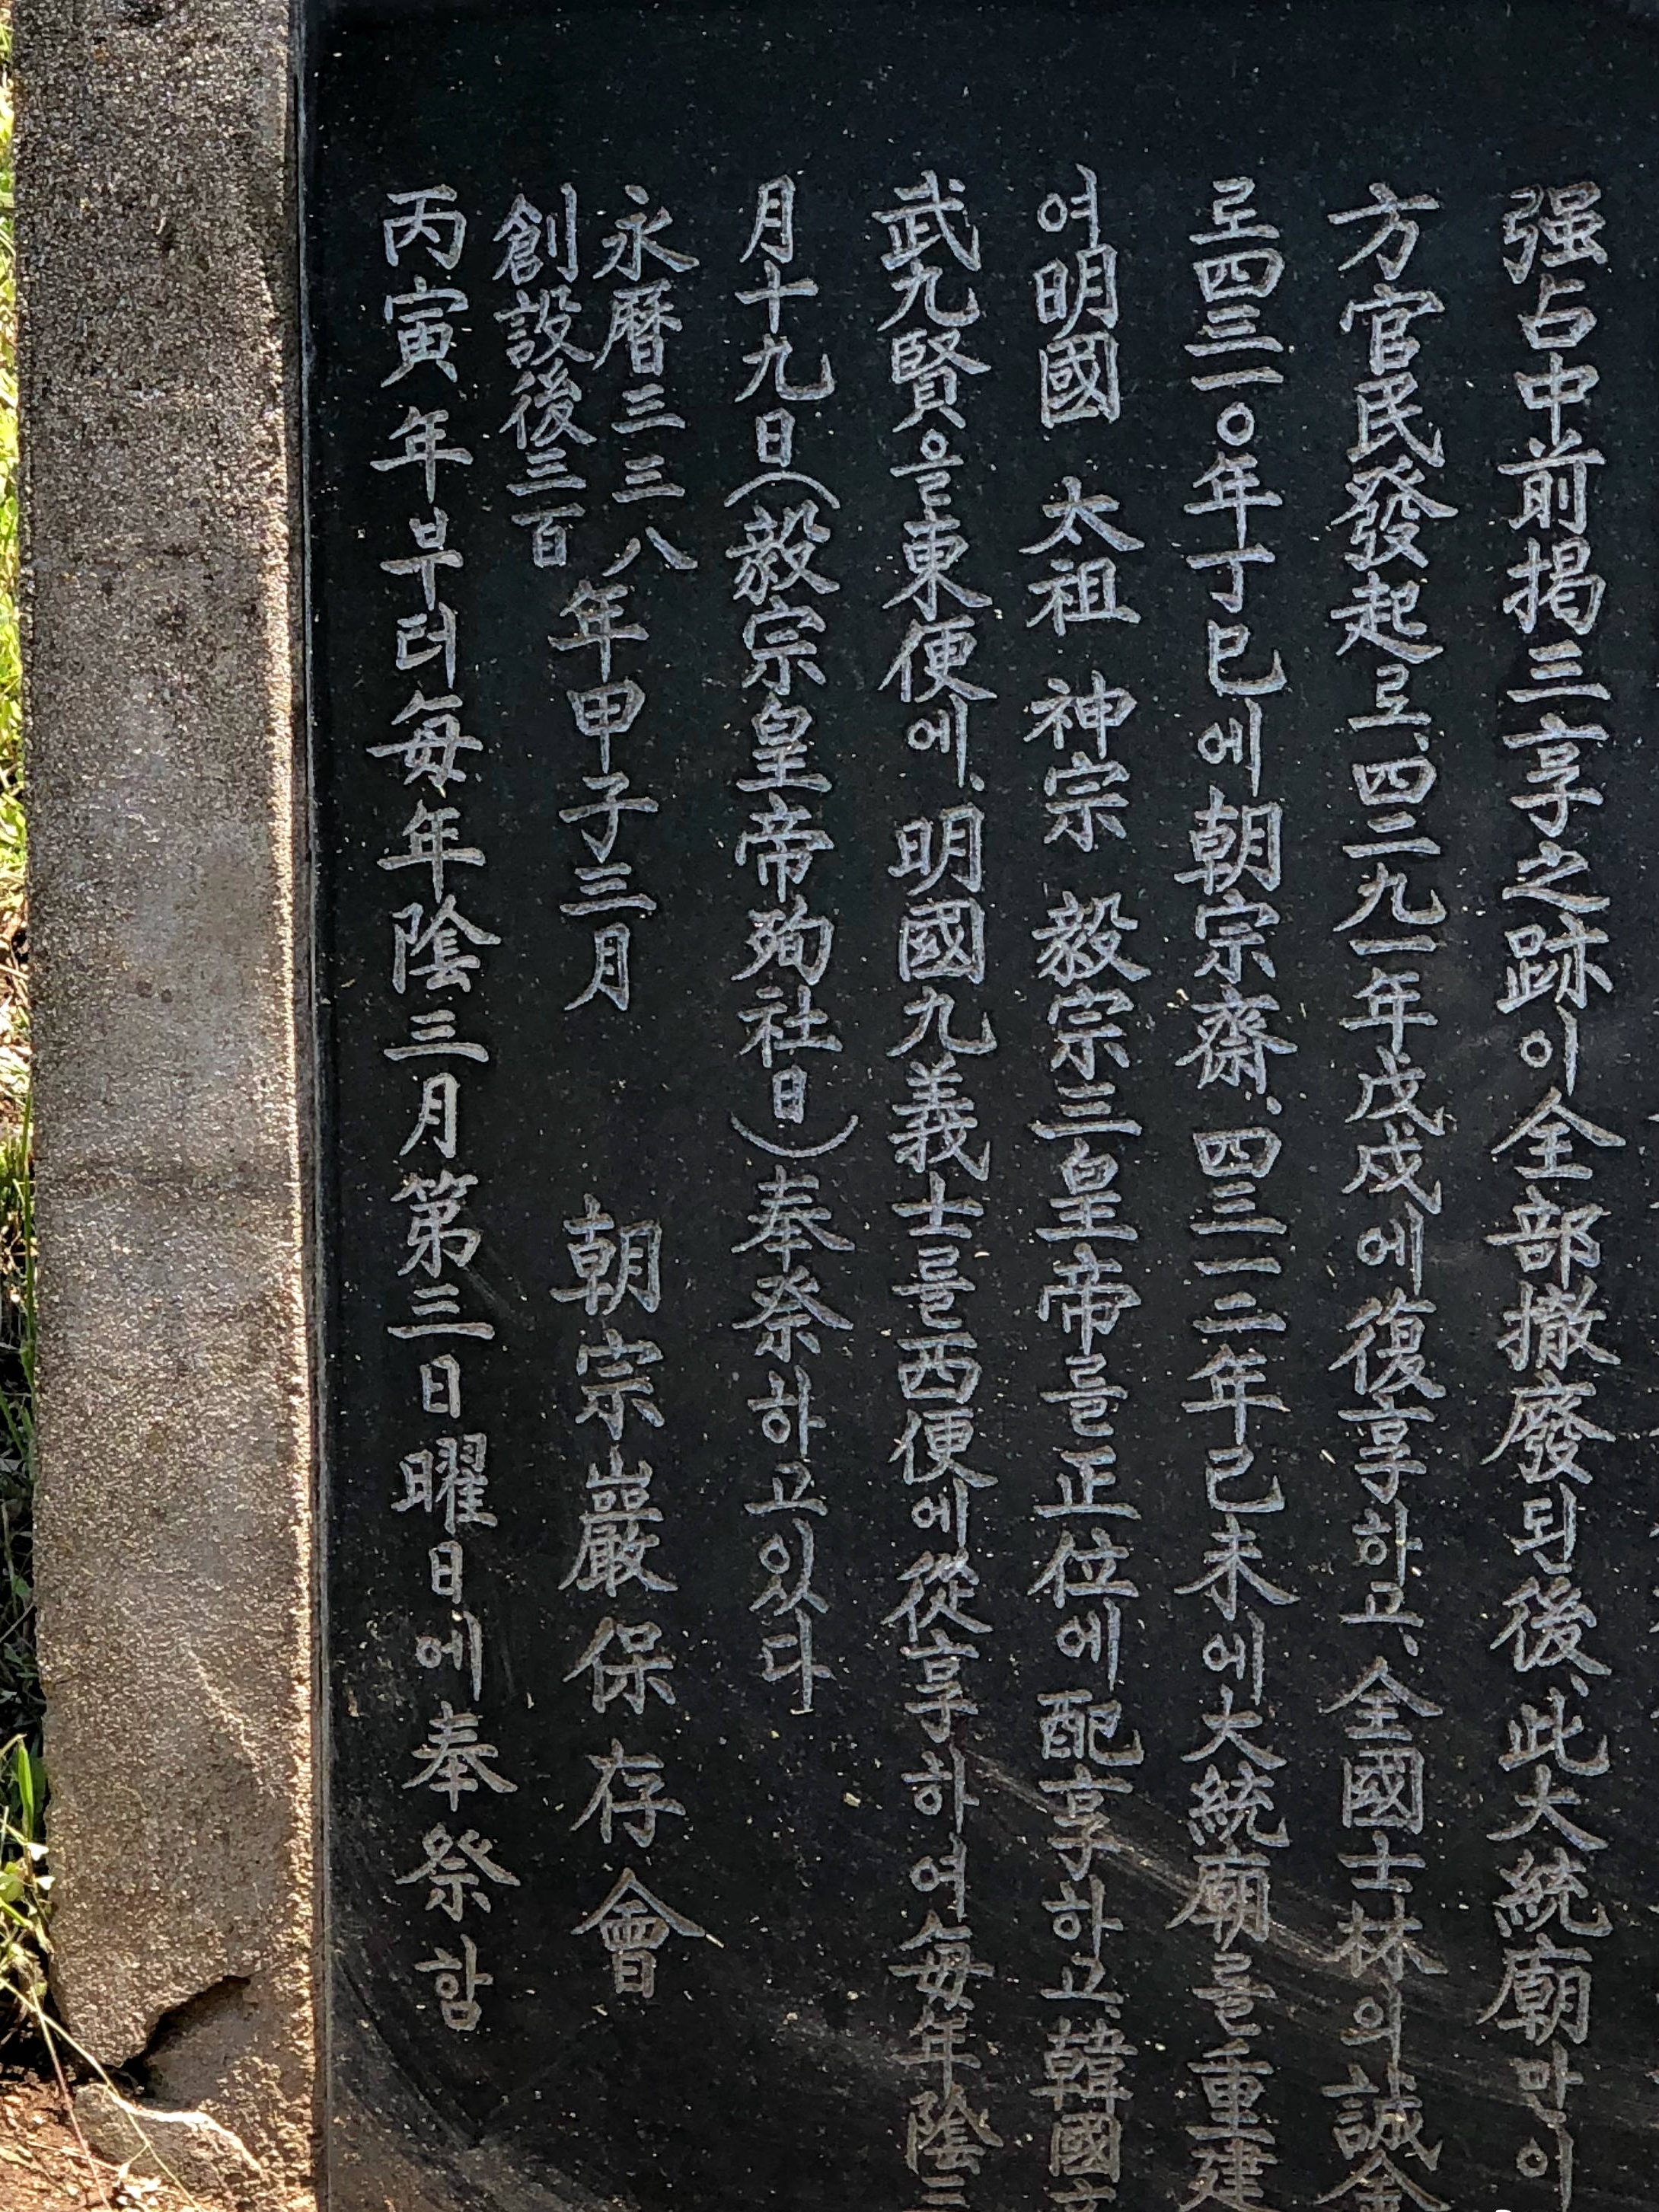 强占中前揭三享之跡이全部撤廢되後、此大統廟만이
方官民發起로、四二九一年戊戌에復享하고、全國士林의誠金
로四三一〇年丁巳에朝宗齋、四三一二年己未에大統廟를重建
여明國 太祖 神宗 毅宗三皇帝를正位에配享하고、韓國文
武九賢을東便에、明國九義士를西便에從享하여每年陰三
月十九日(毅宗皇帝殉社日)奉祭하고있다
永曆三三八
創設後三百
年甲子三月 朝宗巖保存會
丙寅年부터每年陰三月第三日曜日에奉祭함